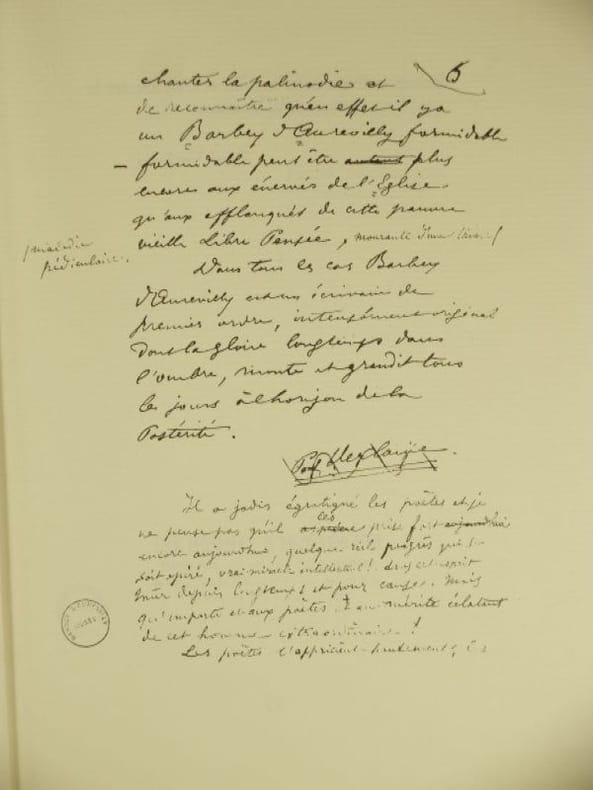 6
chanter la palinodie et
de reconnaître qu'en effet il y a
un Barbey d'Aurevilly formidable
– formidable peut être autant plus
encore aux énervés de l'Eglise
qu'aux efflanqués de cette pauvre
vieille Libre Pensée, mourante d'une
/ maladie
pédiculaire.
Dans tous les cas Barbey
d'Aurevilly est un écrivain de
premier ordre, intensément original
dont la gloire longtemps dans
l'ombre, monte et grandit tous
les jours à l'horizon de la
Postérité.
Il a jadis égratigné les poëtes et je
ne pense pas qu'il les prise fort aujourd'hui
encore aujourdhui, quelque réel progrès qui se
soit opéré, vrai miracle intellectuel! dans cet esprit
mûr depuis longtemps et pour cause. Mais
qu'importe et aux poëtes et au mérite éclatant
de cet homme extraordinaire!
Les poëtes l'apprécient hautement,